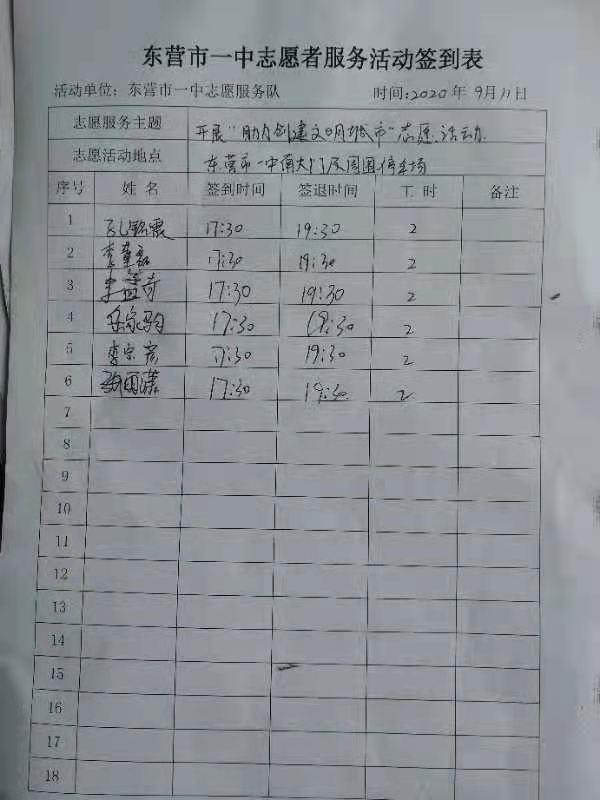 东营市一中志愿者服务活动签到表
活动单位：东营市一中志愿服务队 时间：2020年9月11日
志愿服务主题 开展"助力创建文明城市"志愿活动
志愿活动地点 东营市一中南大门及周围停车场
序号 姓名 签到时间 签退时间 工时 备注
1 17:30 19:30 2
2 17:30 19:30 2
3 17:30 19:30 2
4 17:30 19:30 2
5 李宗彦 17:30 19:30 2
6 17:30 19:30 2
7
8
9
10
11
12
13
14
15
16
17
18